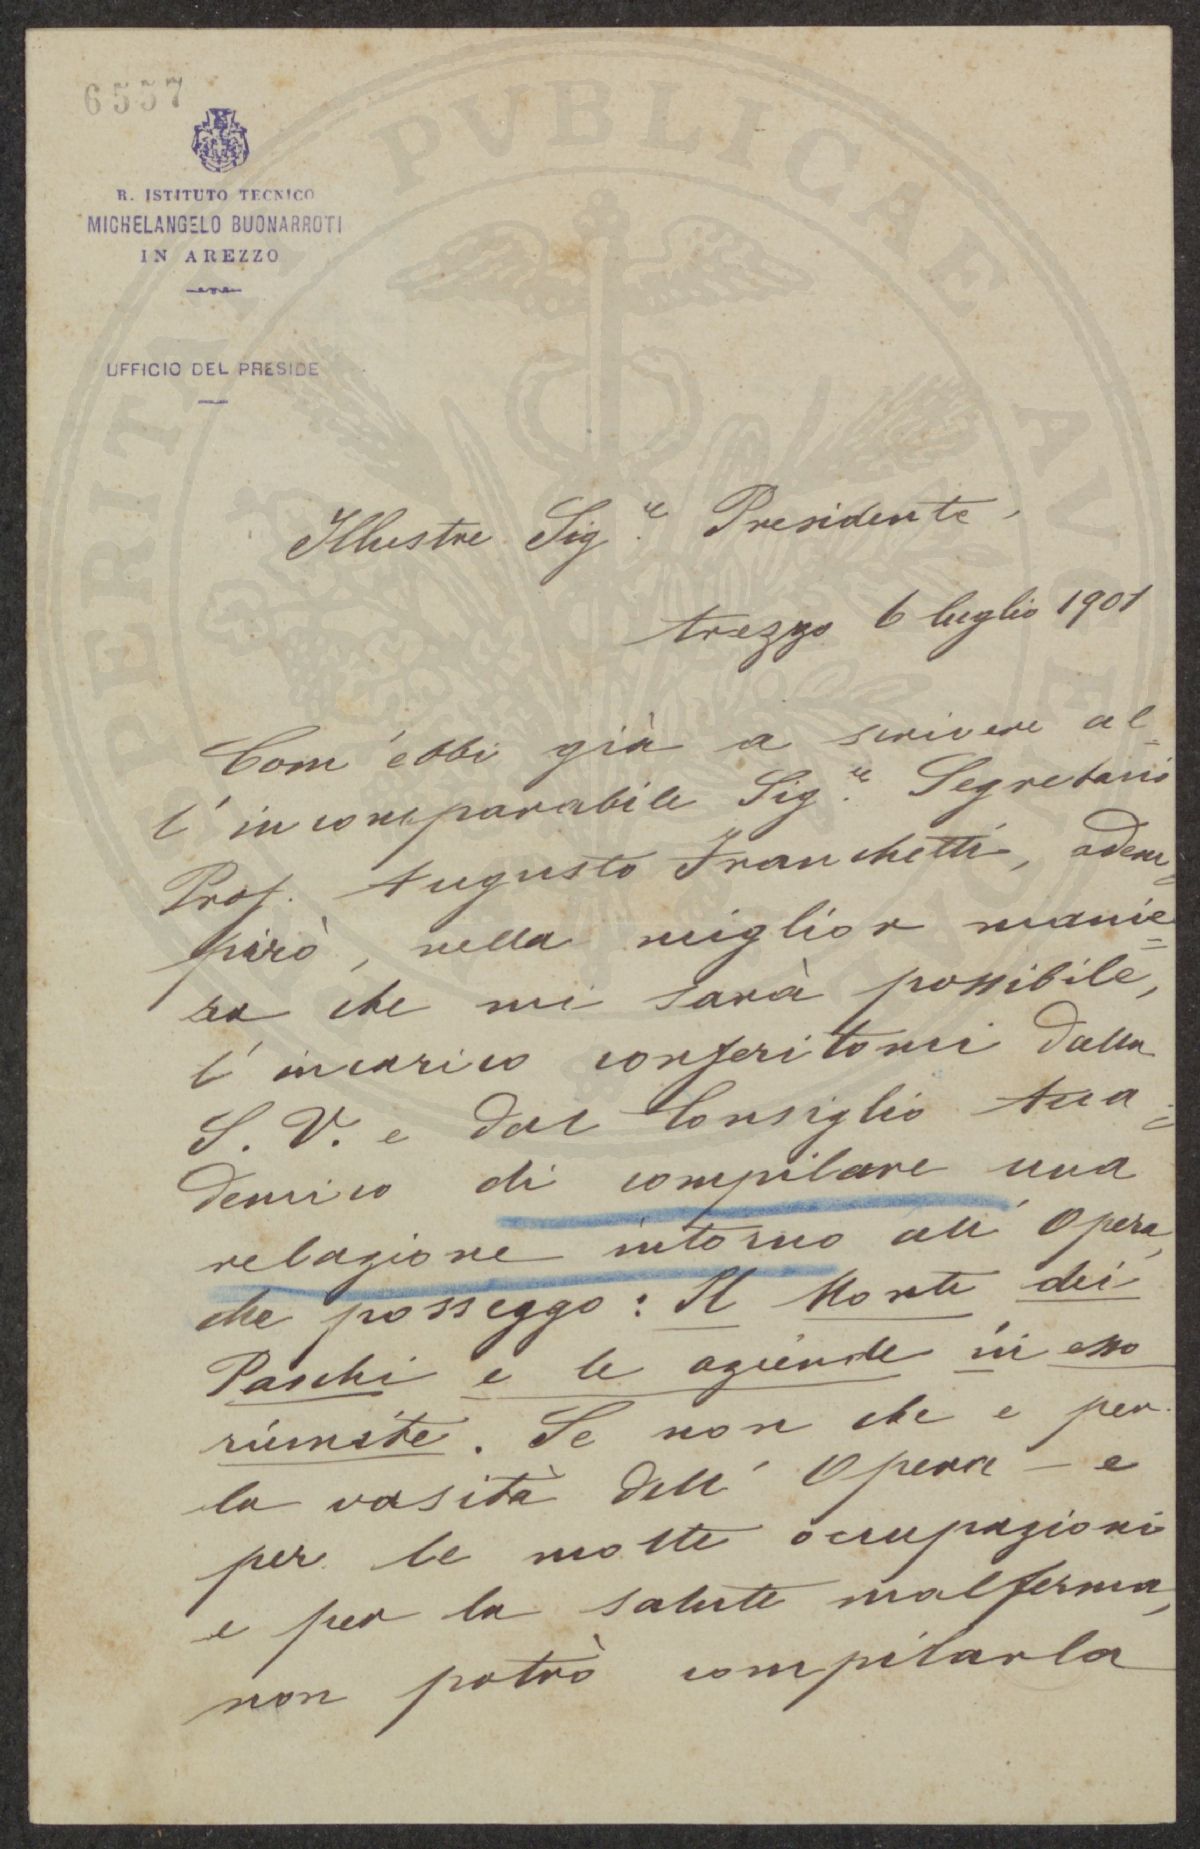 6557
R. ISTITUTO TECNICO
MICHELANGELO BUONARROTI
IN AREZZO
UFFICIO DEL PRESIDE
PROSPERITATI PVBLICAE AVGENDAE
Illustre Sig.re Presidente,
Arezzo 6 luglio 1901
Com'ebbi già a scrivere al=
l'incomparabile Sig.re Segretario
Prof. Augusto Franchetti, adem=
pirò, nella miglior manie=
ra che mi sarà possibile,
l'incarico conferitomi dalla
S. V. e dal Consiglio Acca=
demico di compilare una
relazione intorno all'Opera,
che posseggo: Il Monte dei
Paschi e le aziende in esso
riunite. Se non che e per
la vasità dell'Opera – e
per le molte occupazioni
e per la salute malferma,
non potrò compilarla